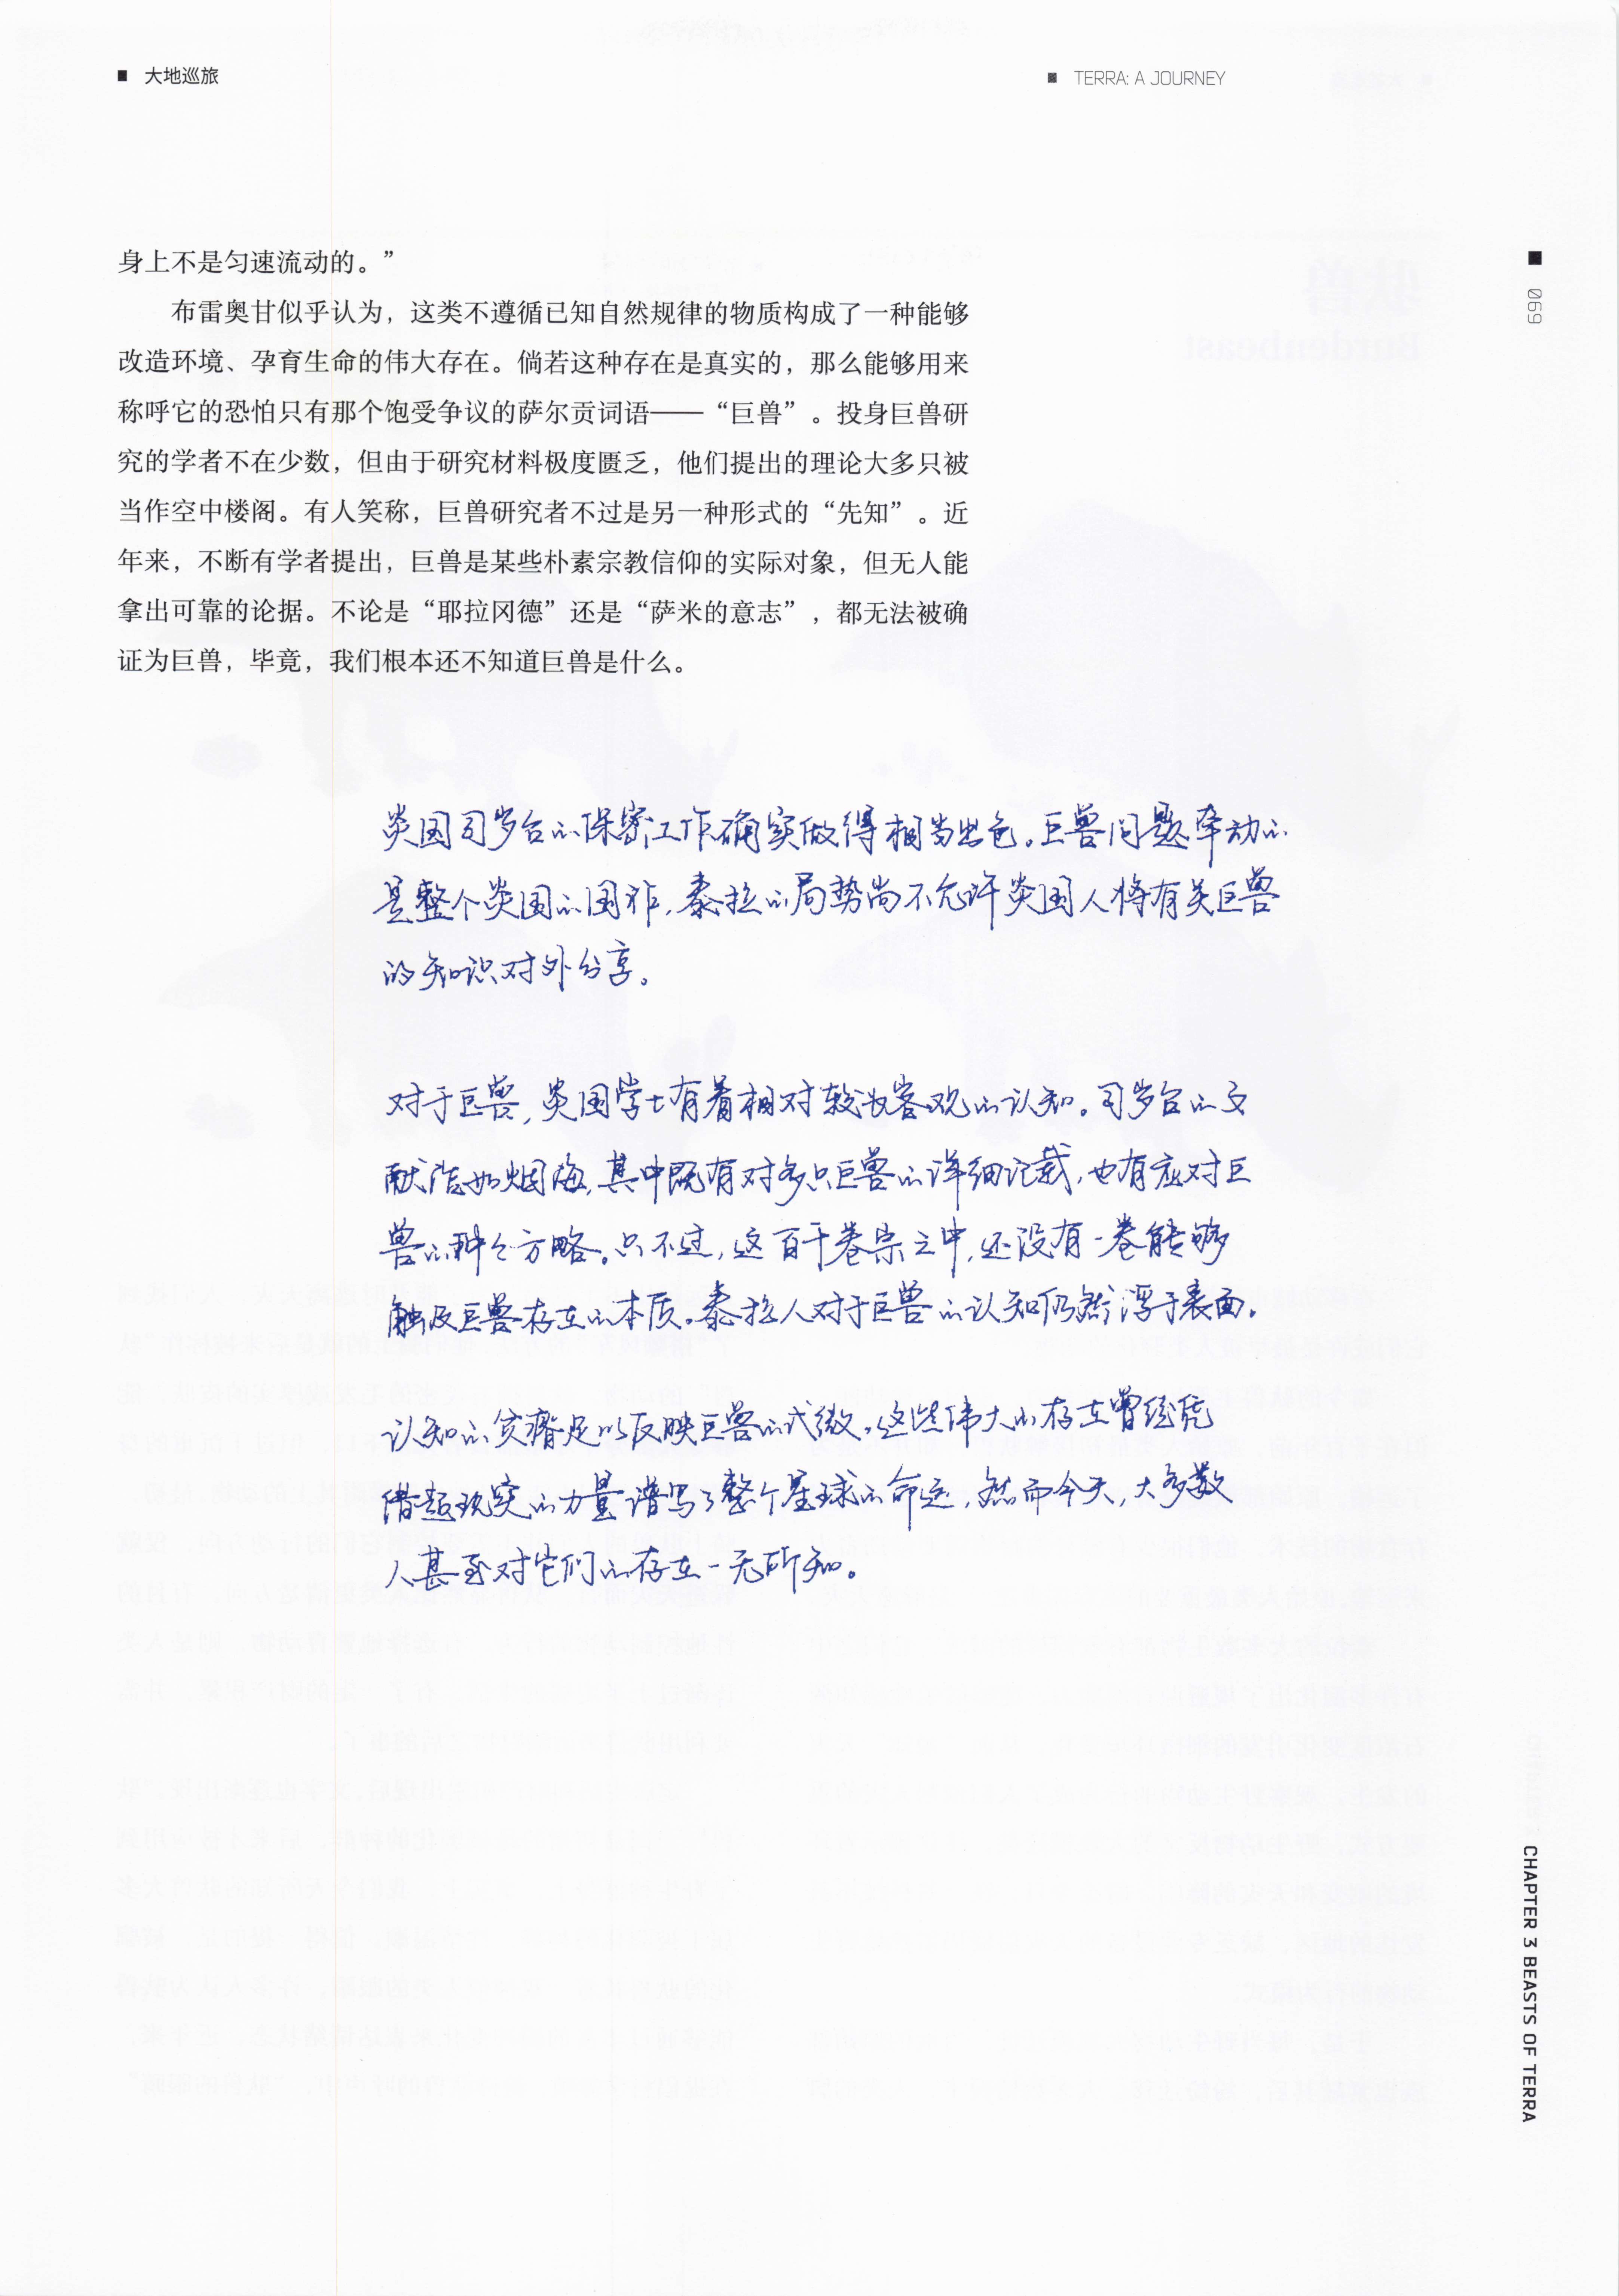 ■ 大地巡旅
■ TERRA: A JOURNEY
■ 069
身上不是匀速流动的。”
布雷奥甘似乎认为，这类不遵循已知自然规律的物质构成了一种能够
改造环境、孕育生命的伟大存在。倘若这种存在是真实的，那么能够用来
称呼它的恐怕只有那个饱受争议的萨尔贡词语——“巨兽”。投身巨兽研
究的学者不在少数，但由于研究材料极度匮乏，他们提出的理论大多只被
当作空中楼阁。有人笑称，巨兽研究者不过是另一种形式的“先知”。近
年来，不断有学者提出，巨兽是某些朴素宗教信仰的实际对象，但无人能
拿出可靠的论据。不论是“耶拉冈德”还是“萨米的意志”，都无法被确
证为巨兽，毕竟，我们根本还不知道巨兽是什么。
炎国司岁台的保密工作确实做得相当出色。巨兽问题牵动的
是整个炎国的国祚，泰拉的局势尚不允许炎国人将有关巨兽
的知识对外分享。
对于巨兽，炎国学士有着相对较为客观的认知。司岁台的文
献浩如烟海，其中既有对多只巨兽的详细记载，也有应对巨
兽的种种方略。只不过，这百千卷宗之中，还没有一卷能够
触及巨兽存在的本质。泰拉人对于巨兽的认知仍然浮于表面。
认知的贫瘠足以反映巨兽的式微。这些伟大的存在曾经凭
借超现实的力量谱写了整个星球的命运，然而今天，大多数
人甚至对它们的存在一无所知。
CHAPTER 3 BEASTS OF TERRA